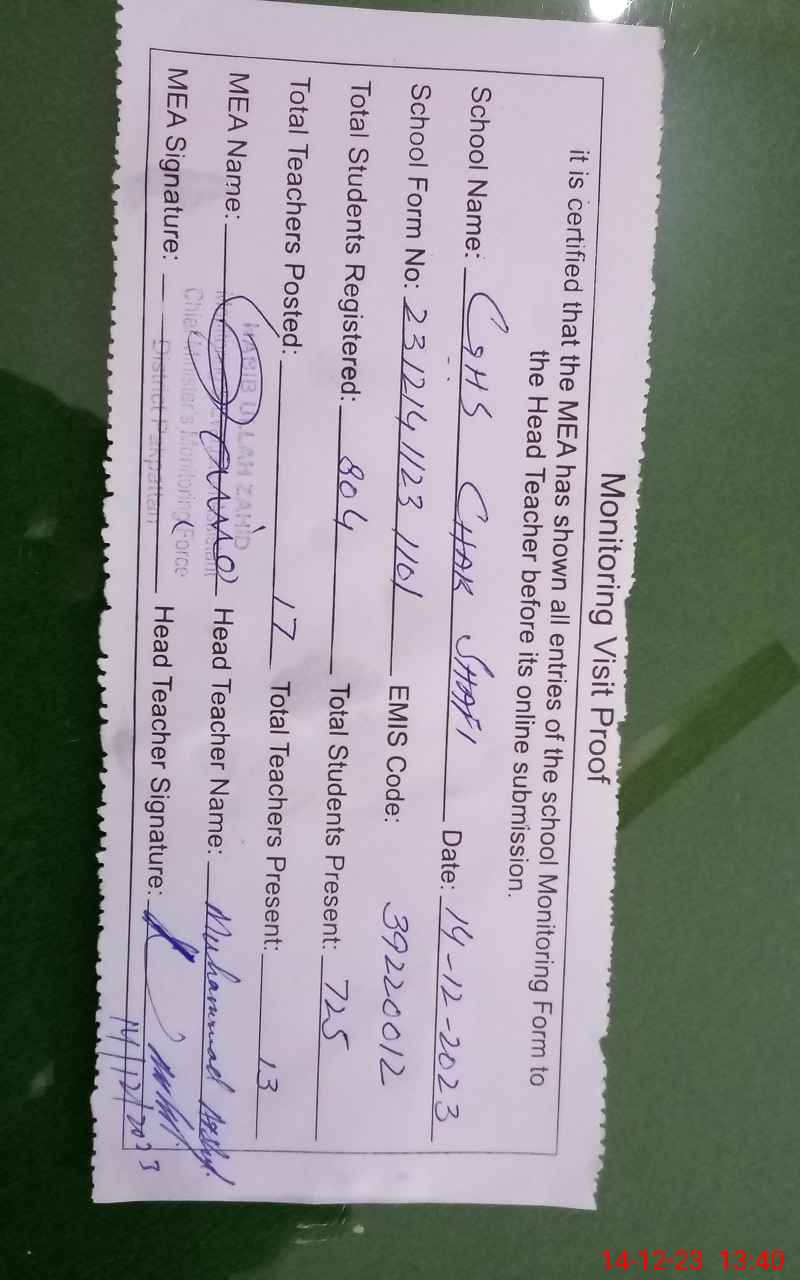 Monitoring Visit Proof
it is certified that the MEA has shown all entries of the school Monitoring Form to
the Head Teacher before its online submission.
School Name: GHS CHAK SHAFI Date: 14-12-2023
School Form No: 2312141123 1101 EMIS Code: 39220012
Total Students Registered: 804 Total Students Present: 725
Total Teachers Posted: 17 Total Teachers Present: 13
MEA Name: Head Teacher Name: Muhammad
HABIB ULLAH ZAHID
Chief Minister's Monitoring Force
District Pakpattan
MEA Signature: Head Teacher Signature:
14/12/2023
14-12-23 13:40